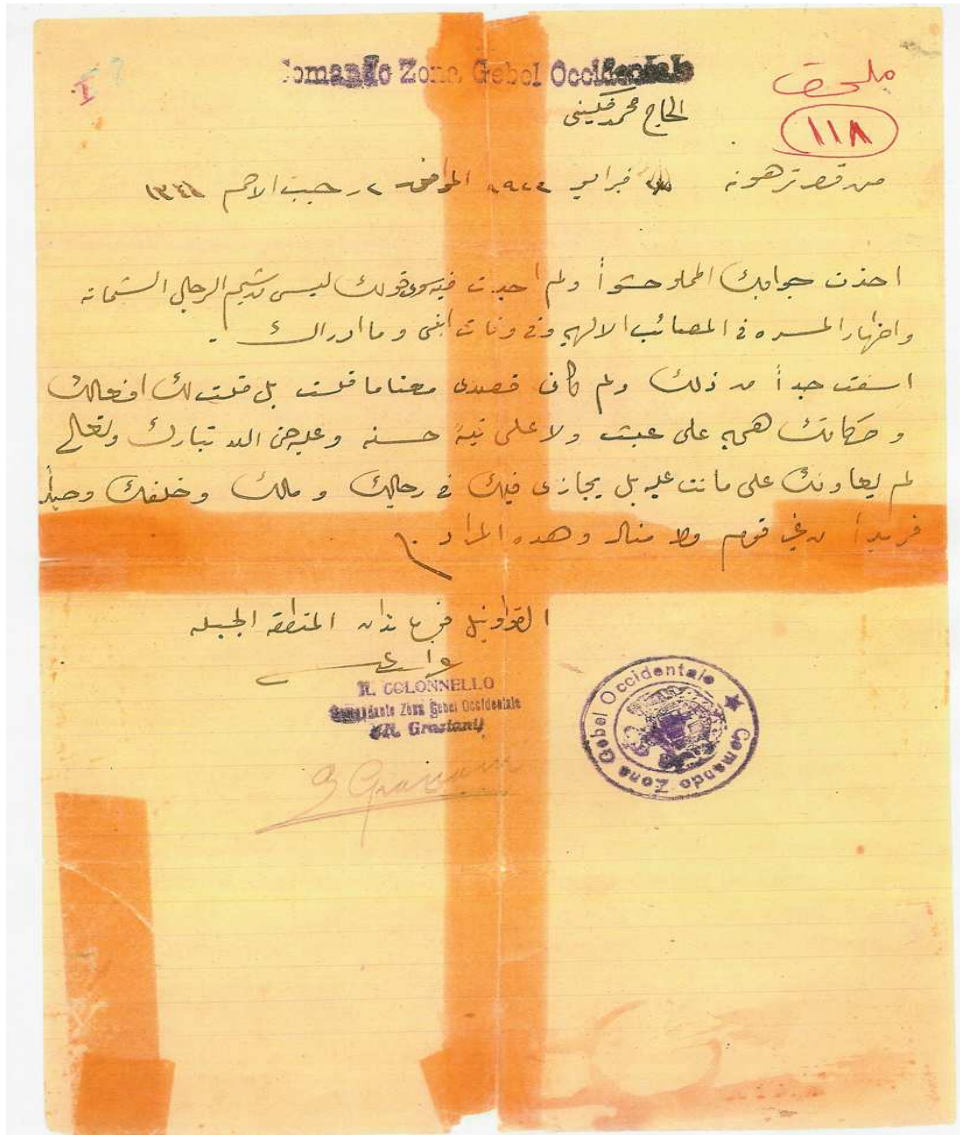 Comando Zona Gebel Occidentale
ملحق
١١٨
الحاج محمد فكيني
من قصر ترهونه فبراير ١٩٢٣ الموافق ٢ رجب الاصم ١٣٤١
اخذت جوابك المملو حشواً ولم اجدت فيه سوى قولك ليس من شيم الرجال الشماته
واظهار المسره في المصائب الالهيه وفي وفات ابني وما ادراك .
اسفت جداً من ذلك ولم كان قصدى معنا ما قلت بل قلت لك افعالك
و حكاتك همي على عبث ولا على نية حسنه وعليه الله تبارك وتعالى
لم يعاونك على مانت عليه بل يجازى فيك في رجالك و مالك و خلفك وحيداً
فريداً من غير قوم ولا منال و هده المراد
المنطقه الجبليه
IL COLONNELLO
Comandante Zona Gebel Occidentale
(R. Graziani)
Comando Zona Gebel Occidentale
R Graziani